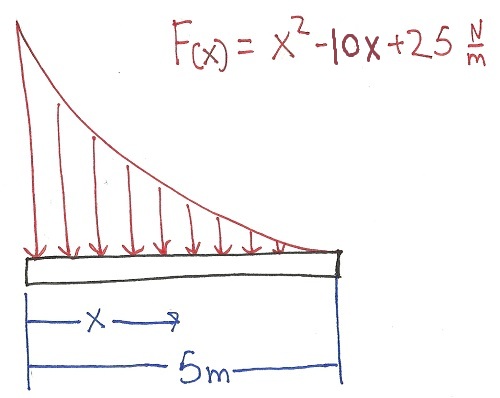 F(x) = x²-10x+25 N/m
x
5m